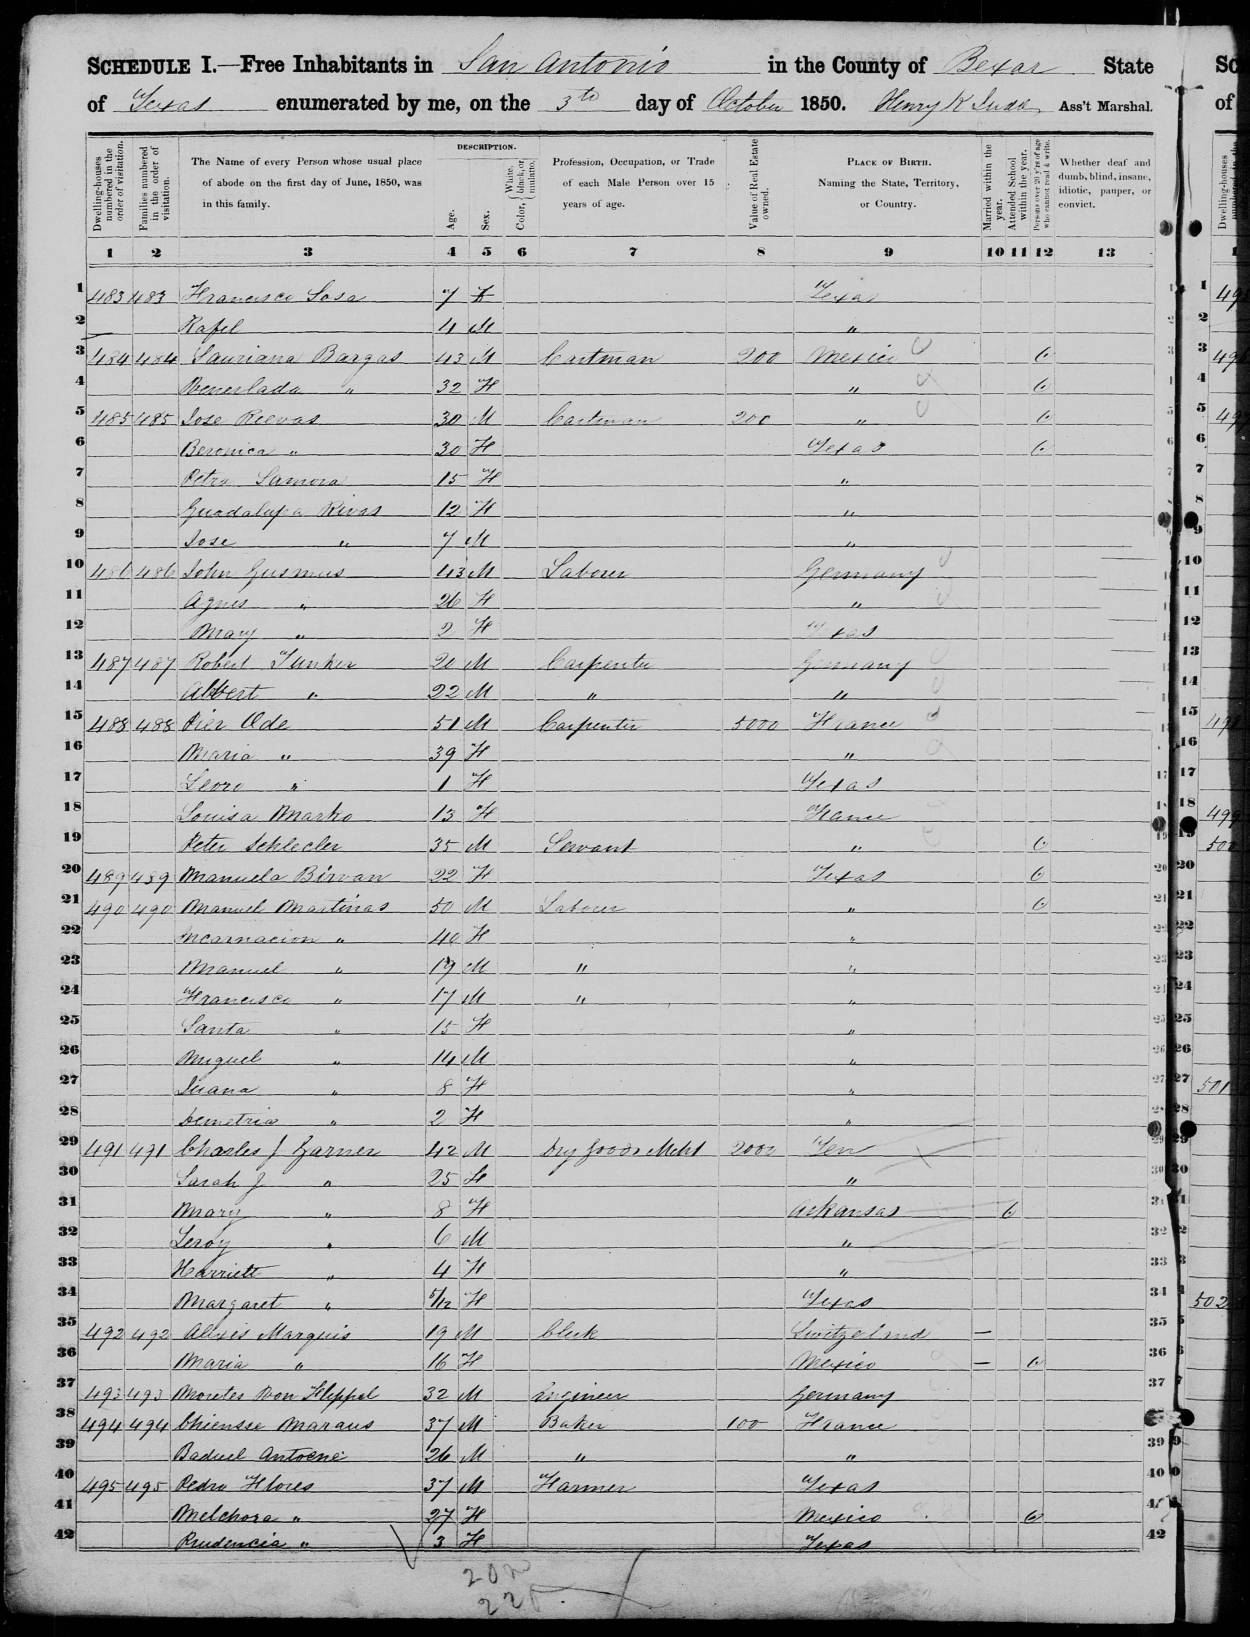 SCHEDULE I.—Free Inhabitants in San Antonio in the County of Bexar State
of Texas enumerated by me, on the 3th day of October 1850. Henry K Judd Ass't Marshal.
Dwelling-houses numbered in the order of visitation.
Families numbered in the order of visitation.
The Name of every Person whose usual place of abode on the first day of June, 1850, was in this family.
DESCRIPTION.
Age.
Sex.
Color, { White, black, or mulatto.
Profession, Occupation, or Trade of each Male Person over 15 years of age.
Value of Real Estate owned.
PLACE OF BIRTH. Naming the State, Territory, or Country.
Married within the year.
Attended School within the year.
Persons over 20 y'rs of age who cannot read & write.
Whether deaf and dumb, blind, insane, idiotic, pauper, or convict.
1 2 3 4 5 6 7 8 9 10 11 12 13
1 483 483 Francisca Sosa 7 F Texas 1
2 Rafel 4 M " 2
3 484 484 Sauriana Bargas 43 M Cartman 200 Mexico 3
4 Wenerlada " 32 F " 4
5 485 485 Jose Reevas 30 M Cartman 200 " 5
6 Beronica " 30 F Texas
7 Petra Samora 15 F "
8 Guadalupa Rivas 12 F "
9 Jose " 7 M "
10 486 486 John Gusmus 43 M Laborer Germany
11 Agnes " 26 F "
12 Mary " 2 F Texas
13 487 487 Robert Tunker 20 M Carpenter Germany
14 Albert " 22 M " "
15 488 488 Pier Ode 51 M Carpenter 5000 France
16 Maria " 39 F "
17 Leoro " 1 F Texas 17
18 Louisa Marko 13 F France
19 Peter Schlecler 35 M Servant " 19
20 489 489 Manuela Birvan 22 F Texas 20
21 490 490 Manuel Martinas 50 M Laborer " 21
22 Incarnacion " 40 F " 22
23 Manuel " 19 M " " 23
24 Francisco " 17 M " " 24
25 Santa " 15 F " 25
26 Miguel " 14 M " 26
27 Juana " 8 F " 27
28 Demetria " 2 F " 28
29 491 491 Charles J Garner 42 M Dry Goods Mcht 2000 Ten 29
30 Sarah J " 25 F " 30
31 Mary " 8 F Arkansas 31
32 Leroy " 6 M " 32
33 Harriett " 4 F " 33
34 Margaret " 5/12 F Texas 34
35 492 492 Alexis Marquis 19 M Clerk Switzelnd — 35
36 Maria " 16 F Mexico — 36
37 493 493 Moretes Von Hippel 32 M Engineer Germany 37
38 494 494 Chiensse Maraus 37 M Baker 100 France 38
39 Baduel Antoene 26 M " " 39
40 495 495 Pedro Flores 37 M Farmer Texas 40
41 Melchora " 27 F Mexico 41
42 Prudencia " 3 F Texas 42